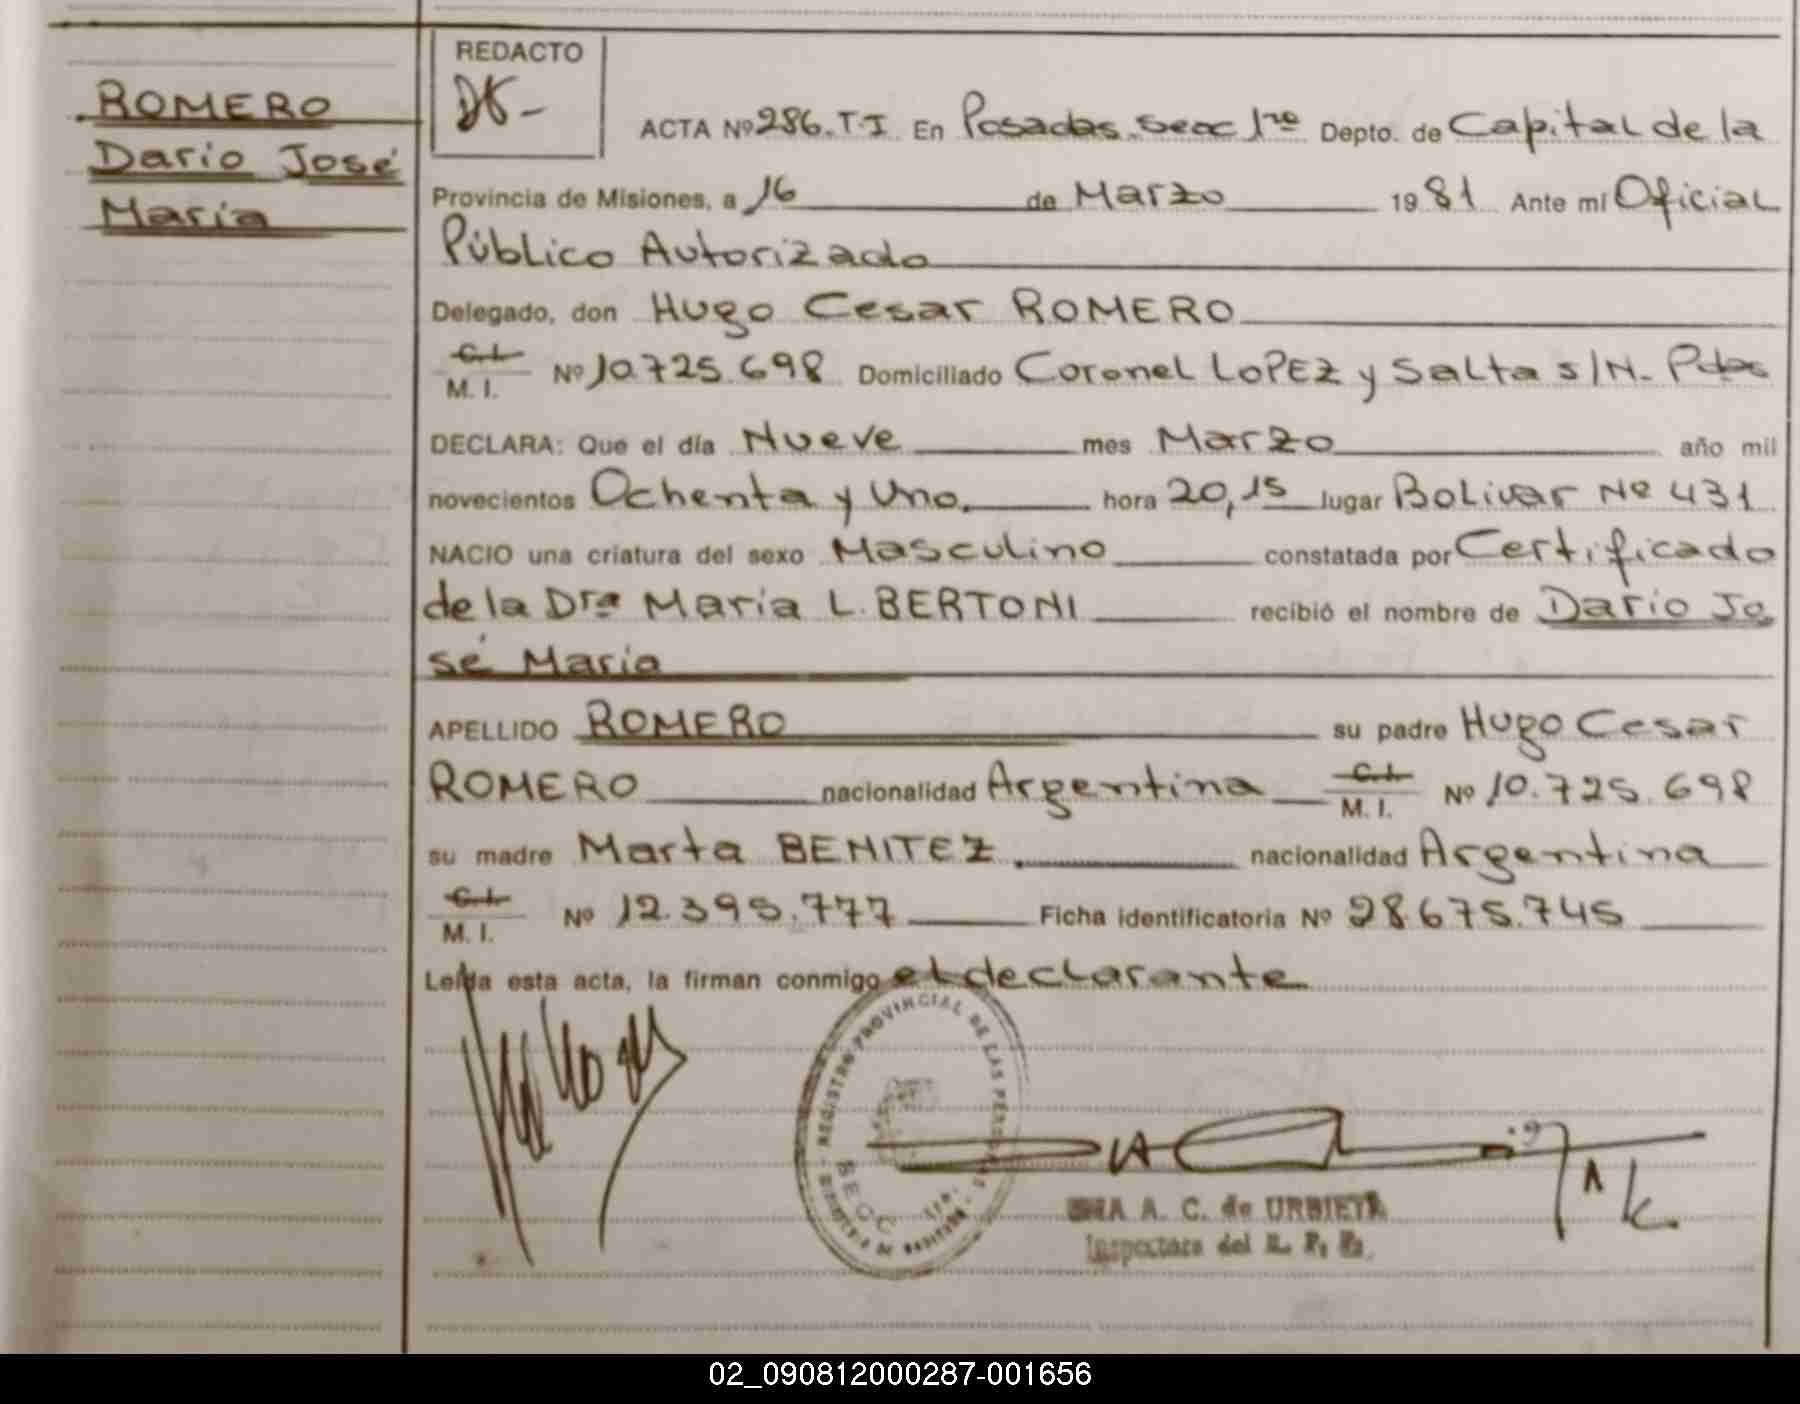 ROMERO
Dario José
Maria
REDACTO
ACTA Nº 286. T. I. En Posadas. Secc 1ra Depto. de Capital de la
Provincia de Misiones, a 16 de Marzo 1981 Ante mí Oficial
Público Autorizado
Delegado, don Hugo Cesar ROMERO
C.I.
M. I. Nº 10.725.698 Domiciliado Coronel LOPEZ y Salta s/N. Pdas
DECLARA: Que el día Nueve mes Marzo año mil
novecientos Ochenta y Uno. hora 20,15 lugar Bolivar Nº 431
NACIO una criatura del sexo Masculino constatada por Certificado
de la Dra Maria L. BERTONI recibió el nombre de Dario Jo
sé Maria
APELLIDO ROMERO su padre Hugo Cesar
ROMERO nacionalidad Argentina C.I. M. I. Nº 10.725.698
su madre Marta BENITEZ. nacionalidad Argentina
C.I.
M. I. Nº 12.395.777 Ficha identificatoria Nº 28.675.745
Leída esta acta, la firman conmigo el declarante
REGISTRO PROVINCIAL DE LAS PERSONAS
A. C. de URBIETA
Inspectora del R. P. P.
02_090812000287-001656